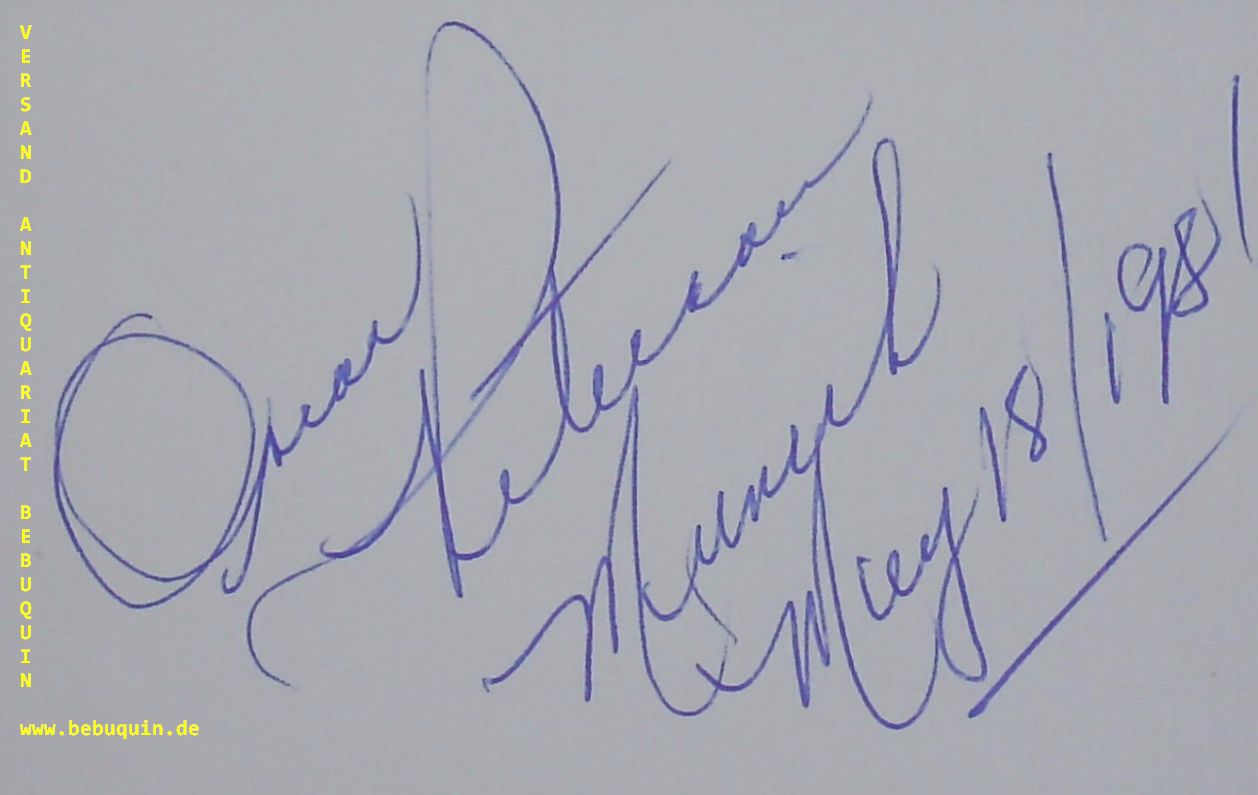 VERSAND ANTIQUARIAT BEBUQUIN
Oscar
Peterson
Munich
May 18/1981
www.bebuquin.de